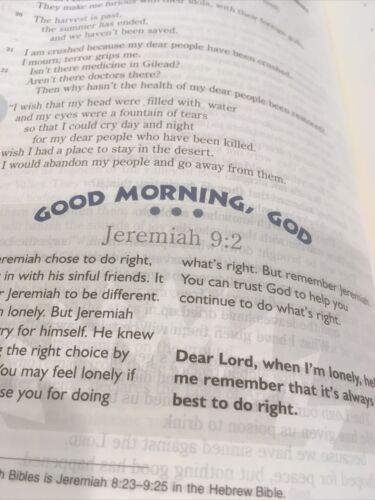 They make me furious with their idols, with their foreign gods.
20 The harvest is past,
the summer has ended,
and we haven't been saved.
21 I am crushed because my dear people have been crushed.
I mourn; terror grips me.
22 Isn't there medicine in Gilead?
Aren't there doctors there?
Then why hasn't the health of my dear people been restored?
"I wish that my head were filled with water
and my eyes were a fountain of tears
so that I could cry day and night
for my dear people who have been killed.
wish I had a place to stay in the desert.
I would abandon my people and go away from them.
GOOD MORNING, GOD
Jeremiah 9:2
eremiah chose to do right,
in with his sinful friends. It
r Jeremiah to be different.
lonely. But Jeremiah
ry for himself. He knew
g the right choice by
You may feel lonely if
se you for doing
what's right. But remember Jeremiah.
You can trust God to help you
continue to do what's right.
Dear Lord, when I'm lonely, hel
me remember that it's always
best to do right.
h Bibles is Jeremiah 8:23–9:25 in the Hebrew Bible.